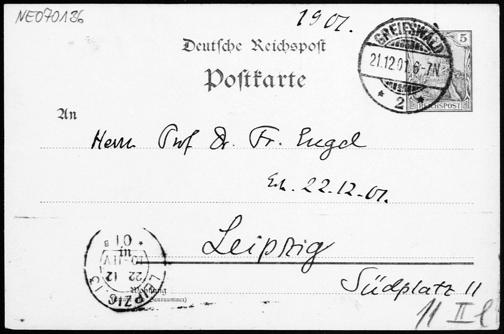 NE070136
1901.
Deutsche Reichspost
Postkarte
GREIFSWALD
21.12.01.6-7N
* 2 *
5
REICHSPOST
An
Herrn Prof Dr. Fr. Engel
Erh. 22.12.01.
Leipzig
Südplatz 11
LEIPZIG
22 12
01
Wohnung
11 II